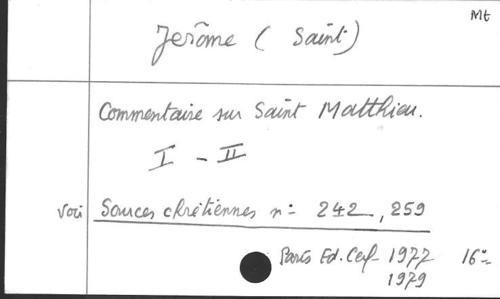 Mt
Jerôme ( Saint )
Commentaire sur Saint Matthieu.
I - II
voir Sources chrétiennes n: 242, 259
Paris Ed. Cerf 1977 16°
1979